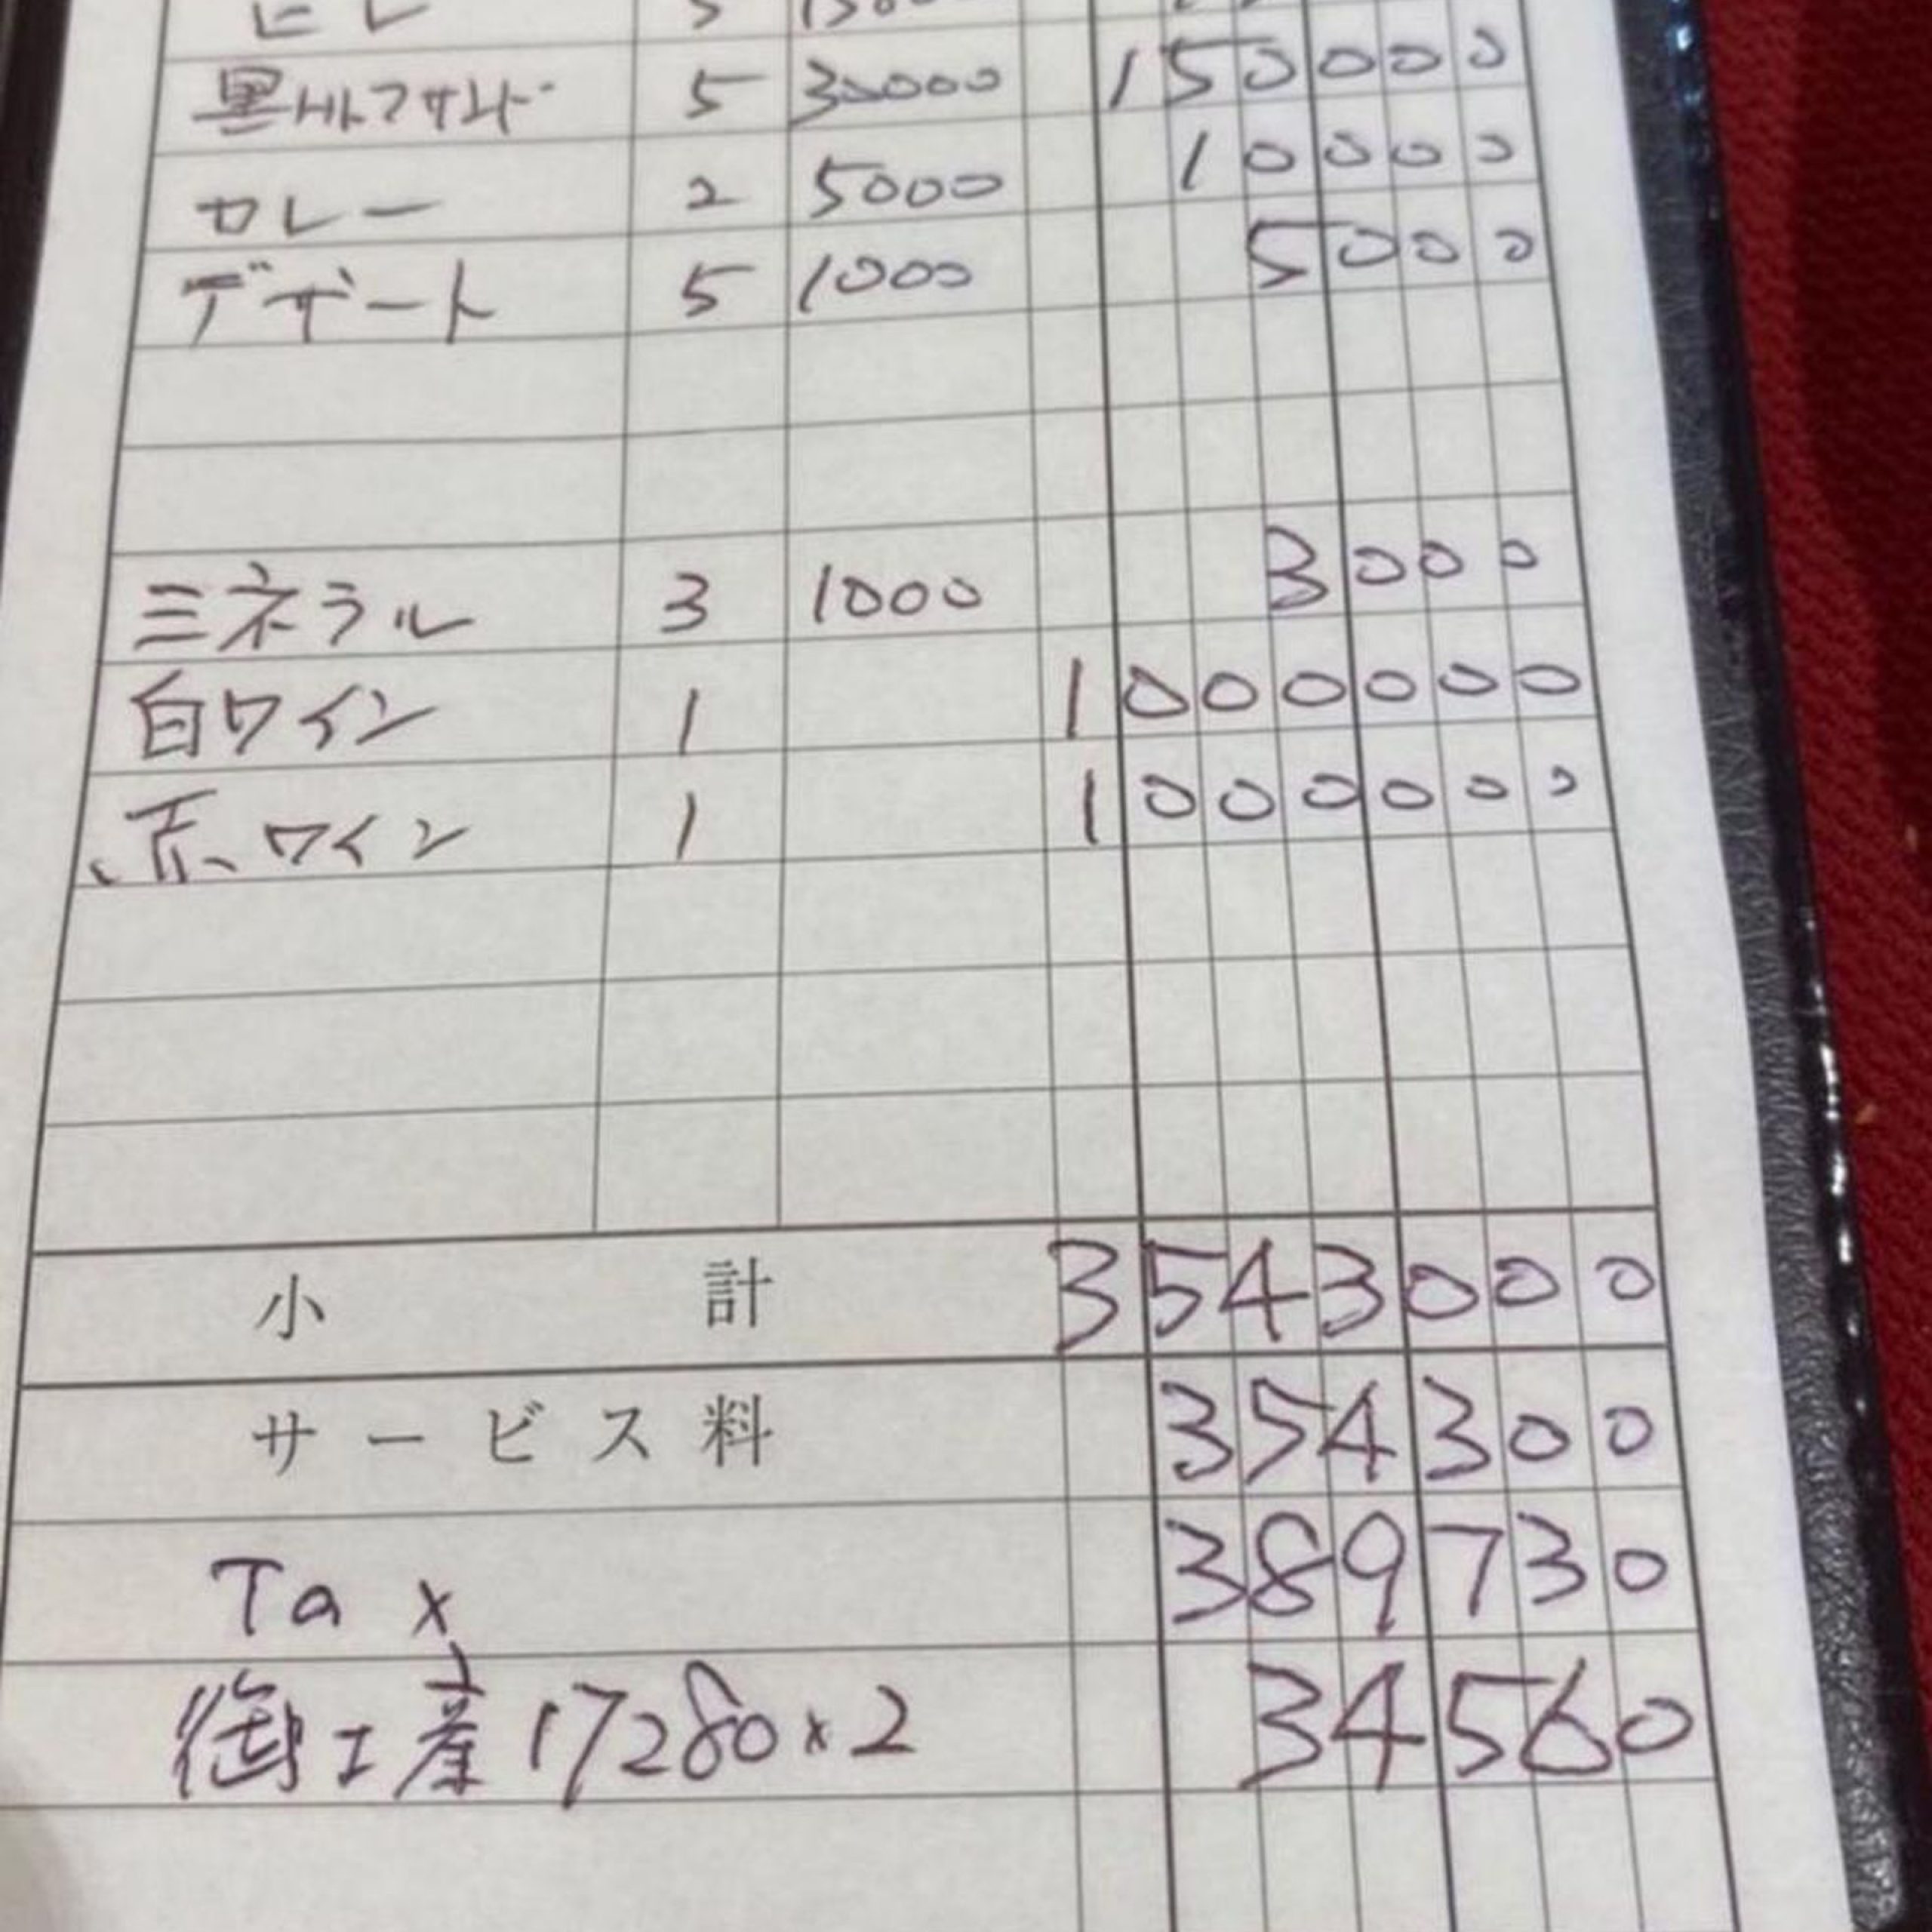 ヒレ 5
黒トリュフサンド 5 30000 150000
カレー 2 5000 10000
デザート 5 1000 5000
ミネラル 3 1000 3000
白ワイン 1 1000000
赤ワイン 1 1000000
小計 3543000
サービス料 354300
Tax 389730
御土産 17280×2 34560